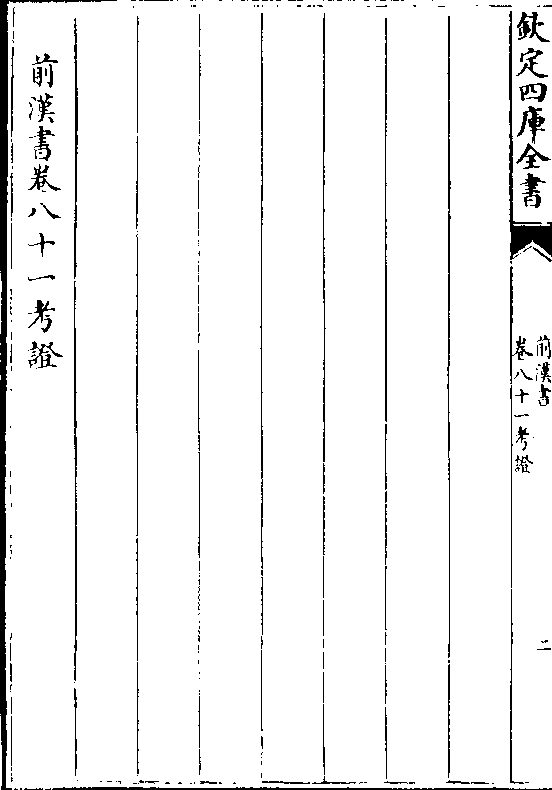 欽定四庫全書
前漢書
卷八十一考證
二
前漢書卷八十一考證